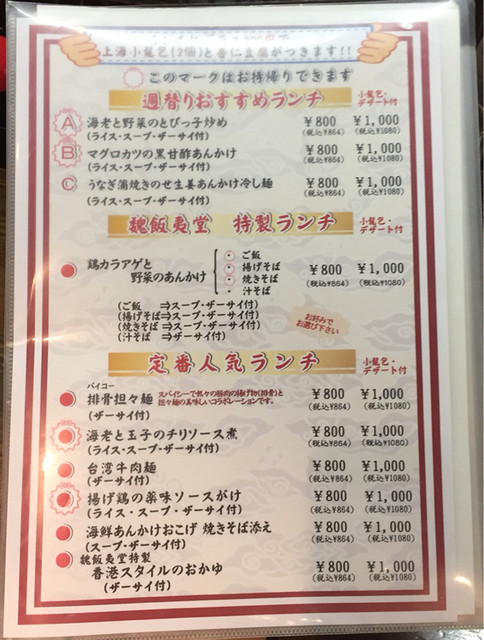 上海小籠包(2個)と杏仁豆腐がつきます!!
このマークはお持帰りできます
週替りおすすめランチ 小籠包・デザート付
A 海老と野菜のとびっ子炒め ¥800 ¥1,000
(ライス・スープ・ザーサイ付) (税込¥864) (税込¥1080)
B マグロカツの黒甘酢あんかけ ¥800 ¥1,000
(ライス・スープ・ザーサイ付) (税込¥864) (税込¥1080)
C うなぎ蒲焼きのせ生姜あんかけ冷し麺 ¥800 ¥1,000
(ライス・スープ・ザーサイ付) (税込¥864) (税込¥1080)
魏飯夷堂 特製ランチ 小籠包・デザート付
鶏カラアゲと
野菜のあんかけ
・ご飯
・揚げそば
・焼きそば
・汁そば
¥800 ¥1,000
(税込¥864) (税込¥1080)
(ご飯 ⇒スープ・ザーサイ付)
(揚げそば⇒スープ・ザーサイ付)
(焼きそば⇒スープ・ザーサイ付)
(汁そば ⇒ザーサイ付)
お好みで
お選び下さい
定番人気ランチ 小籠包・デザート付
パイコー
排骨担々麺 ¥800 ¥1,000
スパイシーで熱々の豚肉の揚げ物(排骨)と
担々麺の美味しいコラボレーションです。
(ザーサイ付) (税込¥864) (税込¥1080)
海老と玉子のチリソース煮 ¥800 ¥1,000
(ライス・スープ・ザーサイ付) (税込¥864) (税込¥1080)
台湾牛肉麺 ¥800 ¥1,000
(ザーサイ付) (税込¥864) (税込¥1080)
揚げ鶏の薬味ソースがけ ¥800 ¥1,000
(ライス・スープ・ザーサイ付) (税込¥864) (税込¥1080)
海鮮あんかけおこげ 焼きそば添え ¥800 ¥1,000
(スープ・ザーサイ付) (税込¥864) (税込¥1080)
魏飯夷堂特製
香港スタイルのおかゆ ¥800 ¥1,000
(ザーサイ付) (税込¥864) (税込¥1080)